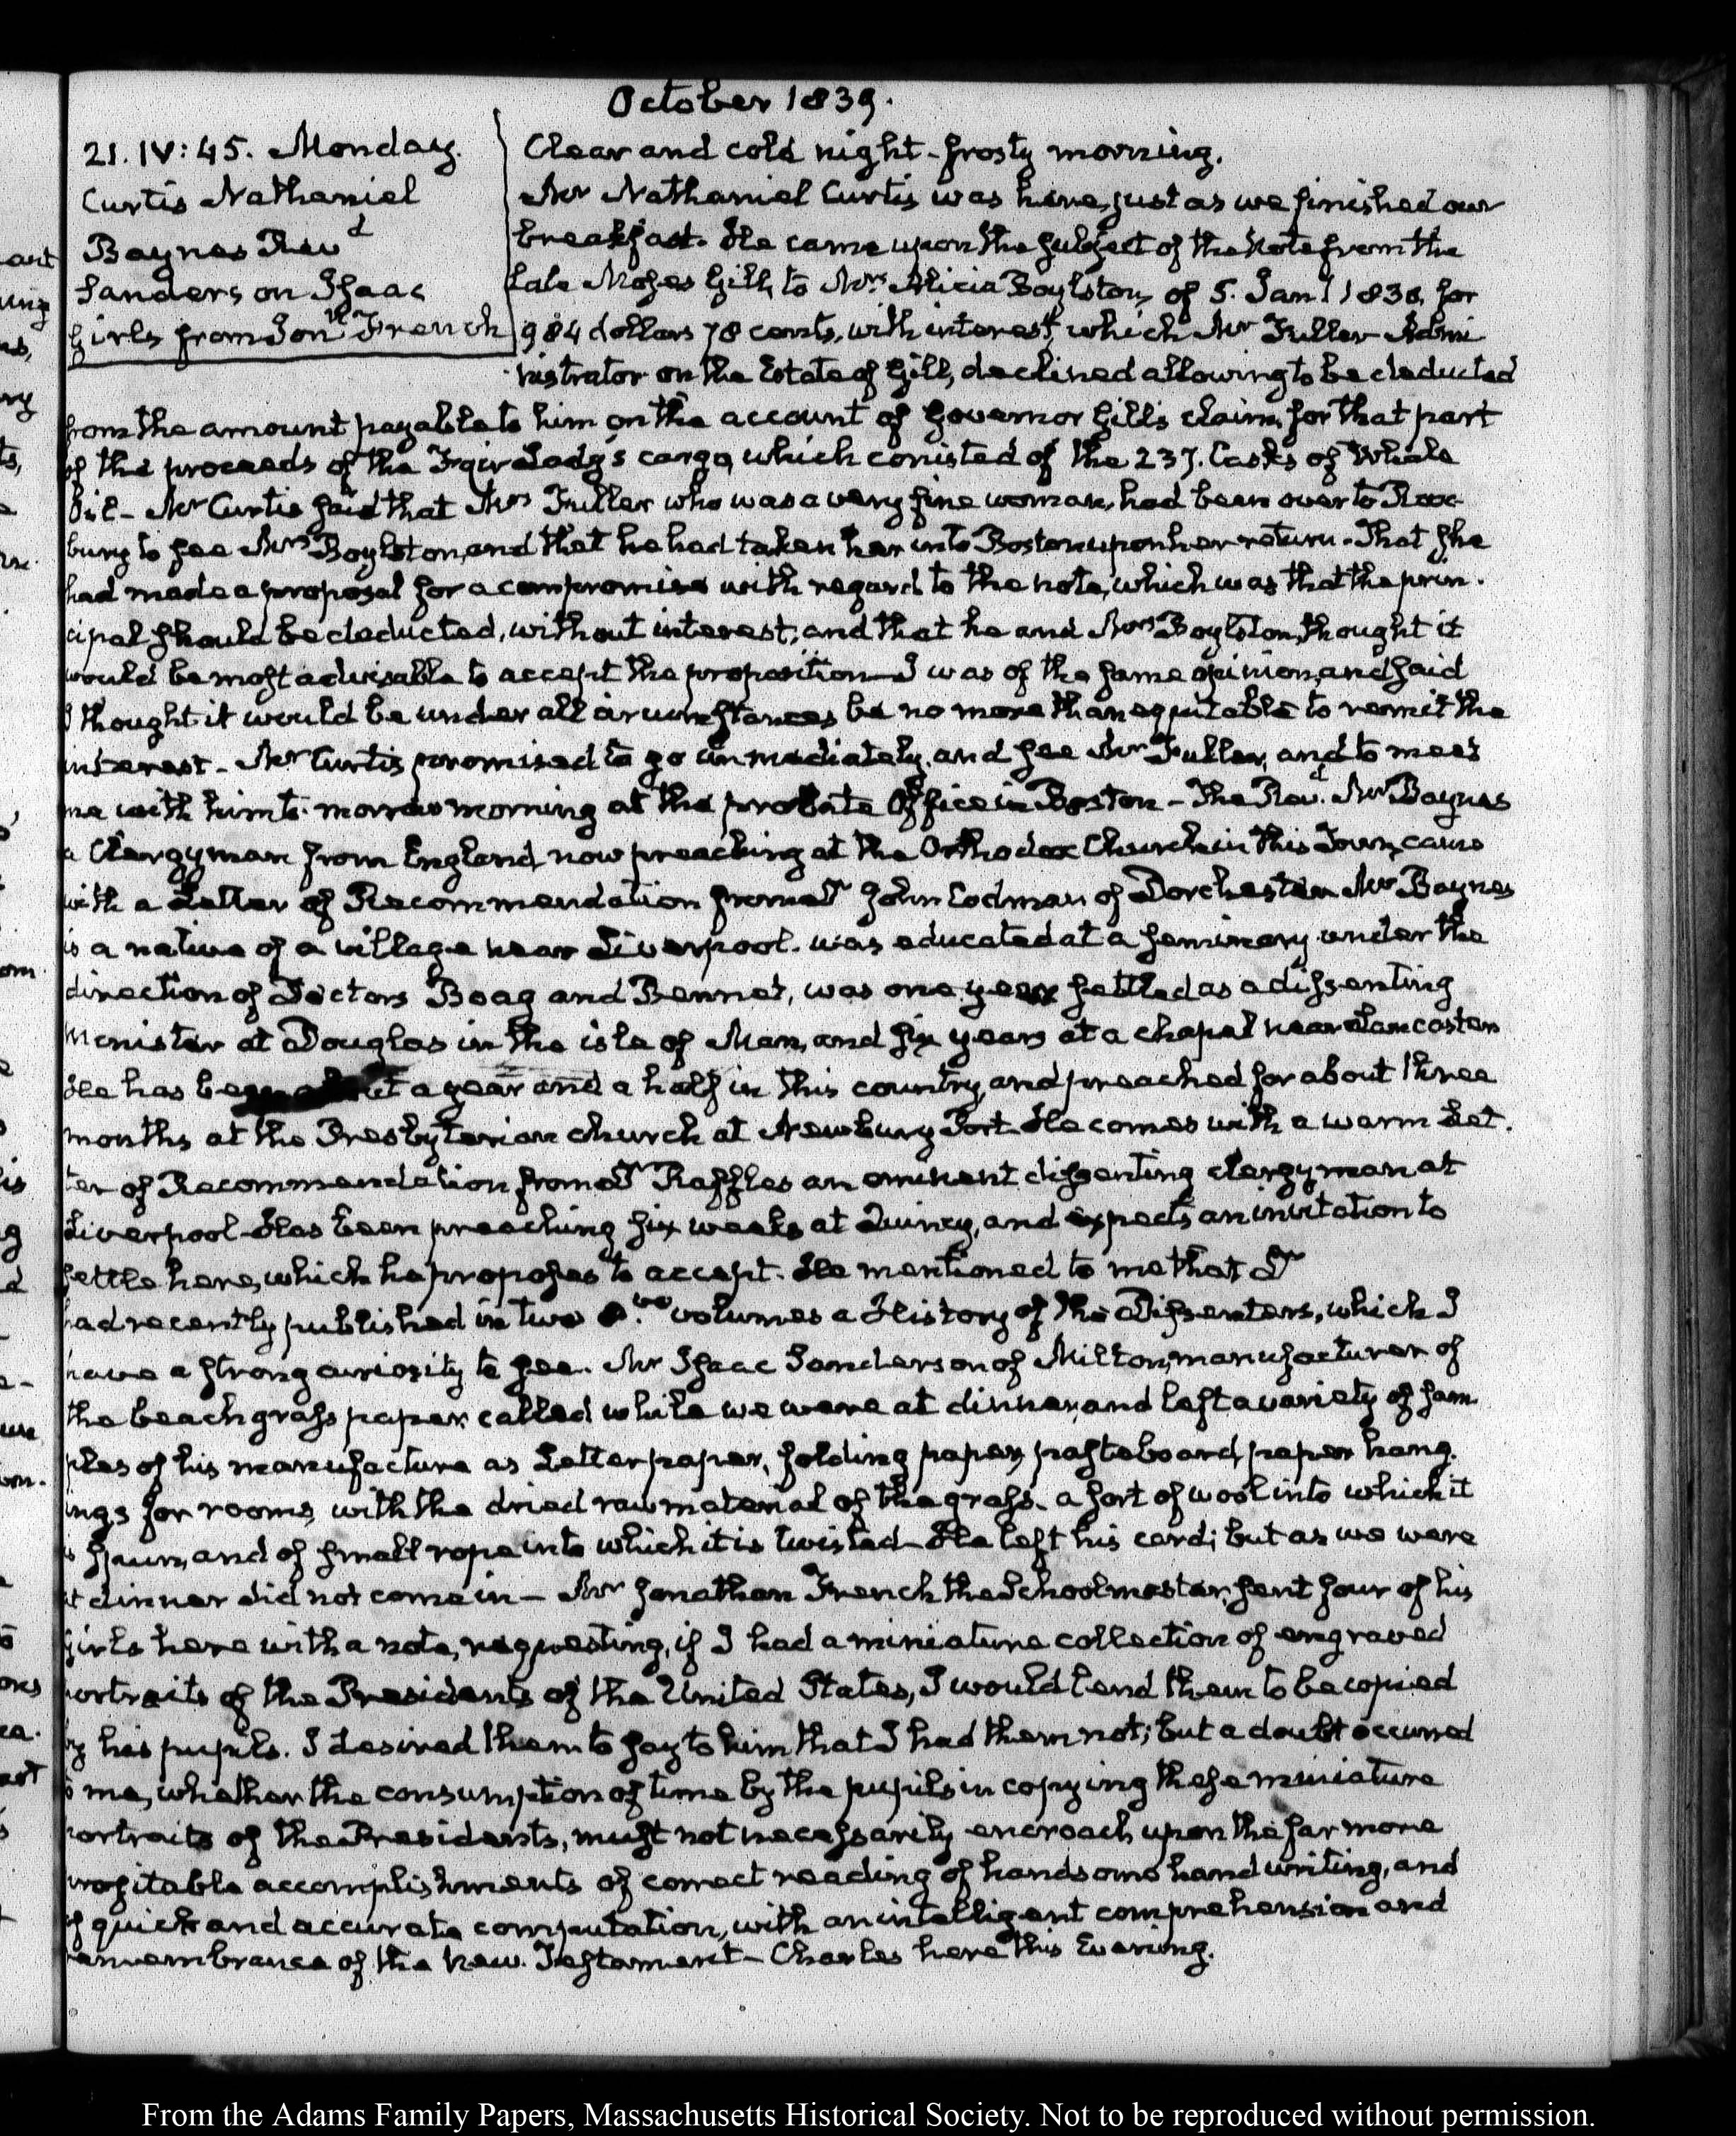 October 1839.
21. IV: 45. Monday.
Curtis Nathaniel
Baynes Revd
Sanderson Isaac
Girls from Jonn French
Clear and cold night - frosty morning.
Mr Nathaniel Curtis was here, just as we finished our
breakfast. He came upon the subject of the Note from the
late Moses Gill, to Mrs Alicia Boylston, of 5. Jany 1830, for
984 dollars 78 cents, with interest, which Mr Fuller Admi-
nistrator on the Estate of Gill, declined allowing to be deducted
from the amount payable to him on the account of Governor Gill's claim, for that part
of the proceeds of the Fair Lady's cargo, which conisted of the 237. Casks of Whale
Oil - Mr Curtis said that Mrs Fuller who was a very fine woman, had been over to Rox-
bury to see Mrs Boylston, and that he had taken her into Boston upon her return. That she
had made a proposal for a compromise with regard to the note, which was that the prin-
cipal should be deducted, without interest, and that he and Mrs Boylston, thought it
would be most advisable to accept the proposition - I was of the same opinion, and said
I thought it would be under all circumstances be no more than equitable to remit the
interest - Mr Curtis promised to go immediately, and see Mr Fuller, and to meet
me with him to-morrow morning at the probate Office in Boston - The Revd. Mr Baynes
a Clergyman from England, now preaching at the Orthodox Church in this Town, came
with a Letter of Recommendation from Dr John Codman of Dorchester Mr Baynes
is a native of a village near Liverpool. was educated at a seminary under the
direction of Doctors Boag and Bennet, was one year settled as a dissenting
Minister at Douglas in the isle of Man, and six years at a chapel near Lancaster
He has been about a year and a half in this country, and preached for about three
months at the Presbyterian church at Newbury Port. He comes with a warm Let-
ter of Recommendation from Dr Raffles an eminent dissenting clergyman at
Liverpool. Has been preaching six weeks at Quincy, and expects an invitation to
settle here, which he proposes to accept. He mentioned to me that Dr
had recently published in two 8.vo volumes a History of the Dissenters, which I
have a strong curiosity to see. Mr Isaac Sanderson of Milton, manufacturer of
the beach grass paper called while we were at dinner, and left a variety of sam-
ples of his manufacture as Letter paper, folding paper, pasteboard, paper hang-
ings for rooms, with the dried raw material of the grass. a sort of wool into which it
is spun, and of small rope into which it is twisted - He left his card; but as we were
at dinner did not come in - Mr Jonathan French the Schoolmaster, sent four of his
girls here with a note, requesting, if I had a miniature collection of engraved
portraits of the Presidents of the United States, I would lend them to be copied
by his pupils. I desired them to say to him that I had them not; but a doubt occurred
to me, whether the consumption of time by the pupils in copying these miniature
portraits of the Presidents, must not necessarily encroach upon the far more
profitable accomplishments of correct reading of handsome hand writing, and
of quick and accurate computation, with an intelligent comprehension and
remembrance of the New Testament - Charles here this Evening.
From the Adams Family Papers, Massachusetts Historical Society. Not to be reproduced without permission.